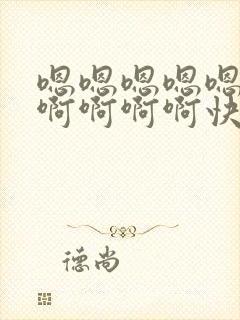 嗯嗯嗯嗯嗯
啊啊啊啊快
德尚